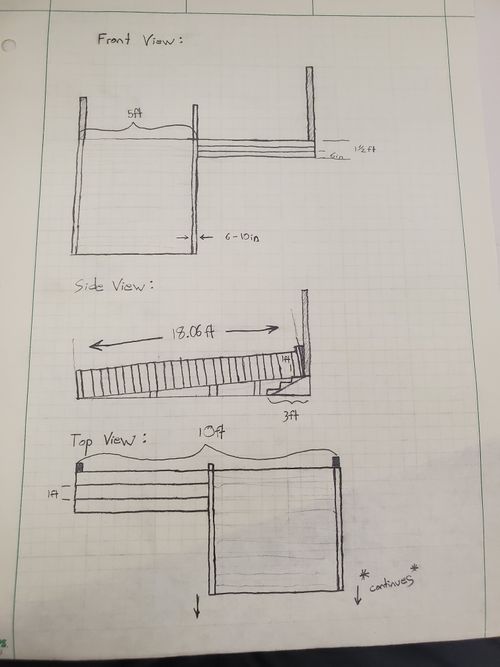 Front View:
5ft
1½ft
6in
6-10in
Side View:
18.06ft
1ft
3ft
Top View:
10ft
1ft
* continues *